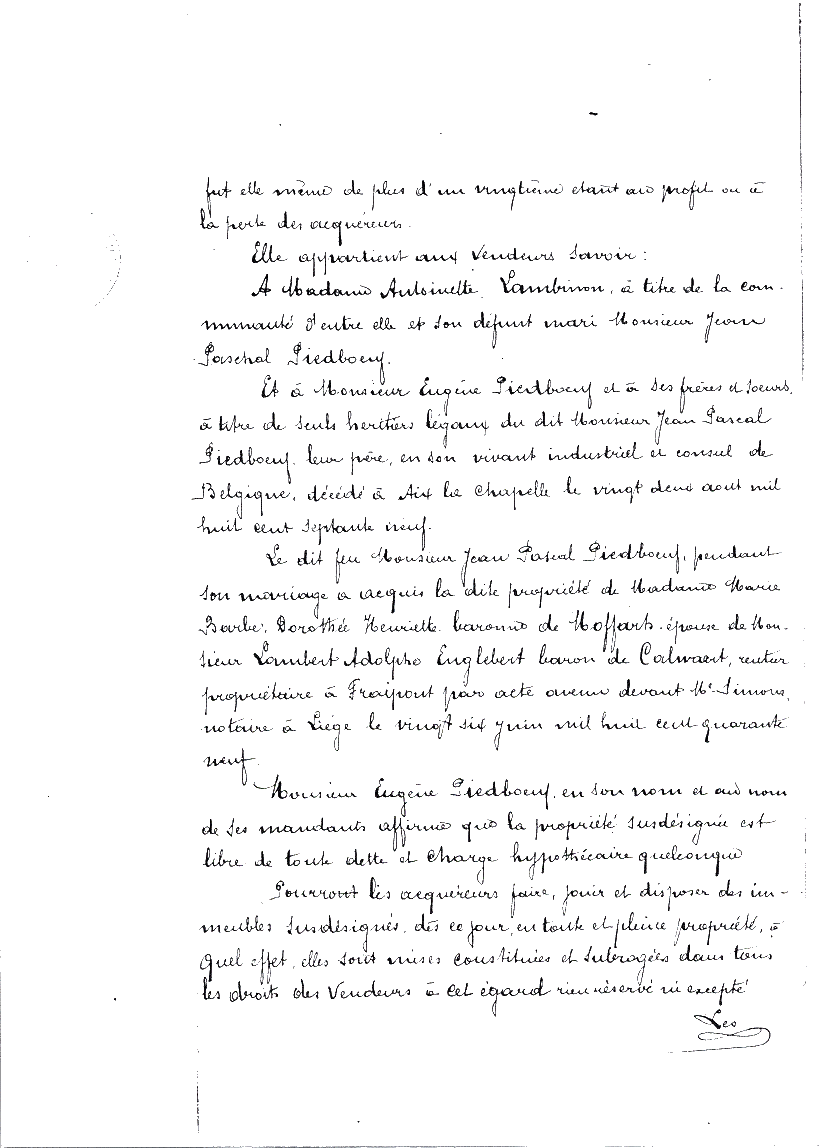 fut elle même de plus d'un vingtième etant au profit ou à
la perte des acquéreurs.
Elle appartient aux Vendeurs Savoir :
A Madame Antoinette Lambinon, à titre de la com-
munauté d'entre elle et son défunt mari Monsieur Jean
Paschal Piedboeuf.
Et à Monsieur Eugène Piedboeuf et à ses frères et soeurs,
à titre de seuls heritiers légaux du dit Monsieur Jean Pascal
Piedboeuf, leur père, en son vivant industriel et consul de
Belgique, décédé à Aix la Chapelle le vingt deux aout mil
huit cent septante neuf.
Le dit feu Monsieur Jean Pascal Piedboeuf, pendant
son mariage a acquis la dite propriété de Madame Marie
Barbe, Dorothée Henriette baronne de Moffarts épouse de Mon-
sieur Lambert Adolphe Englebert baron de Calwaert, rentier
propriétaire à Fraipont par acte avenu devant Me Simons,
notaire à Liége le vingt six juin mil huit cent quarante
neuf.
Monsieur Eugène Piedboeuf, en son nom et au nom
de ses mandants affirme que la propriété susdésignée est
libre de toute dette et charge hypothécaire quelconque
Pourront les acquéreurs faire, jouir et disposer des im-
meubles susdésignés, dès ce jour, en toute et pleine propriété, à
quel effet, elles sont mises constituées et subrogées dans tous
les droits des Vendeurs à cet égard rien réservé ni excepté
Les